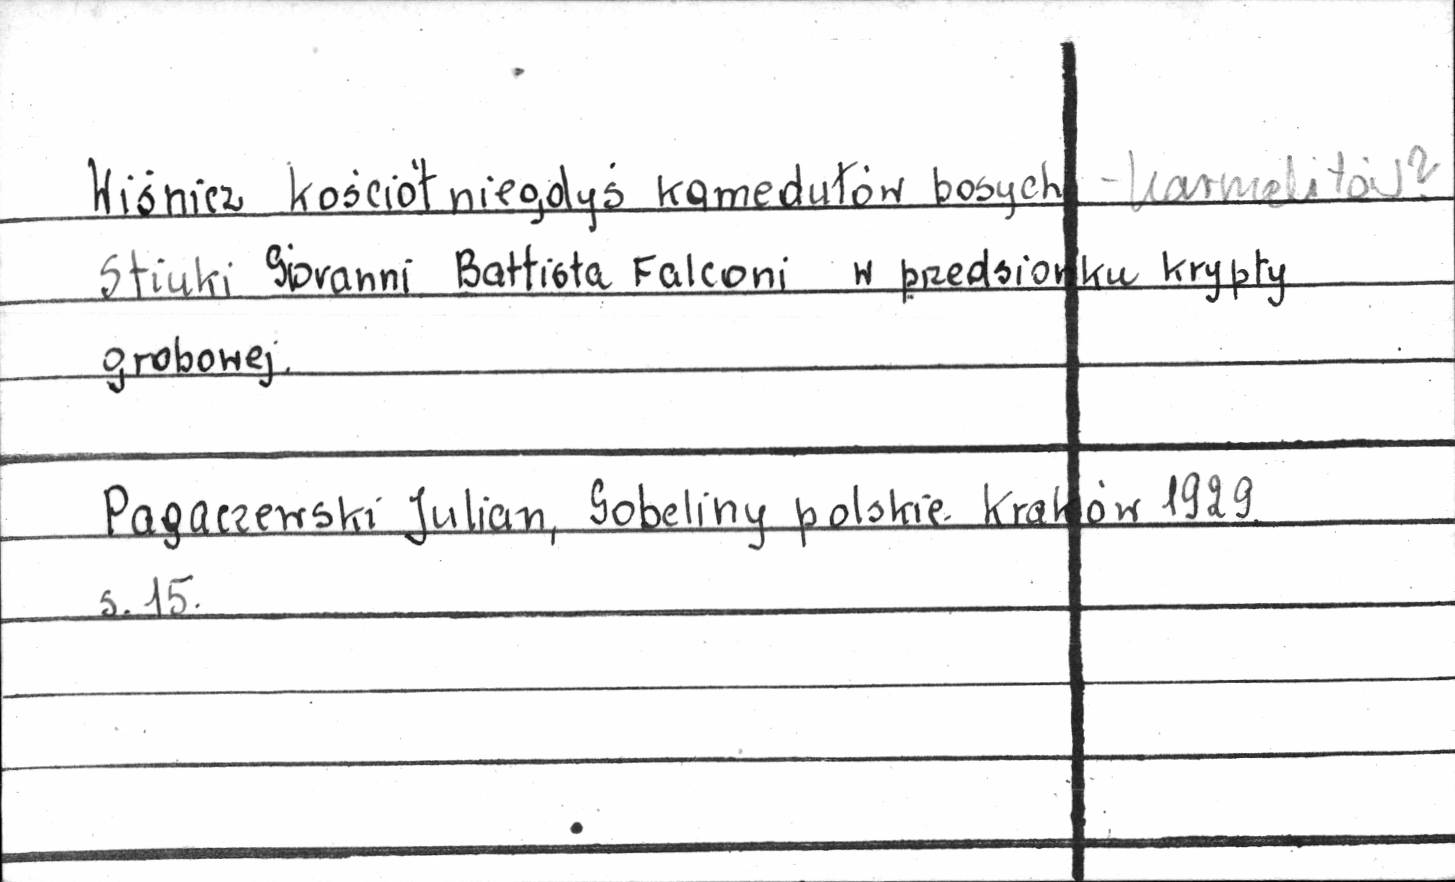 Wiśnicz kościół niegdyś kamedułów bosych - karmelitów?
Stiuki Giovanni Battista Falconi w przedsionku krypty
grobowej.
Pagaczewski Julian, Gobeliny polskie. Kraków 1929
s. 15.